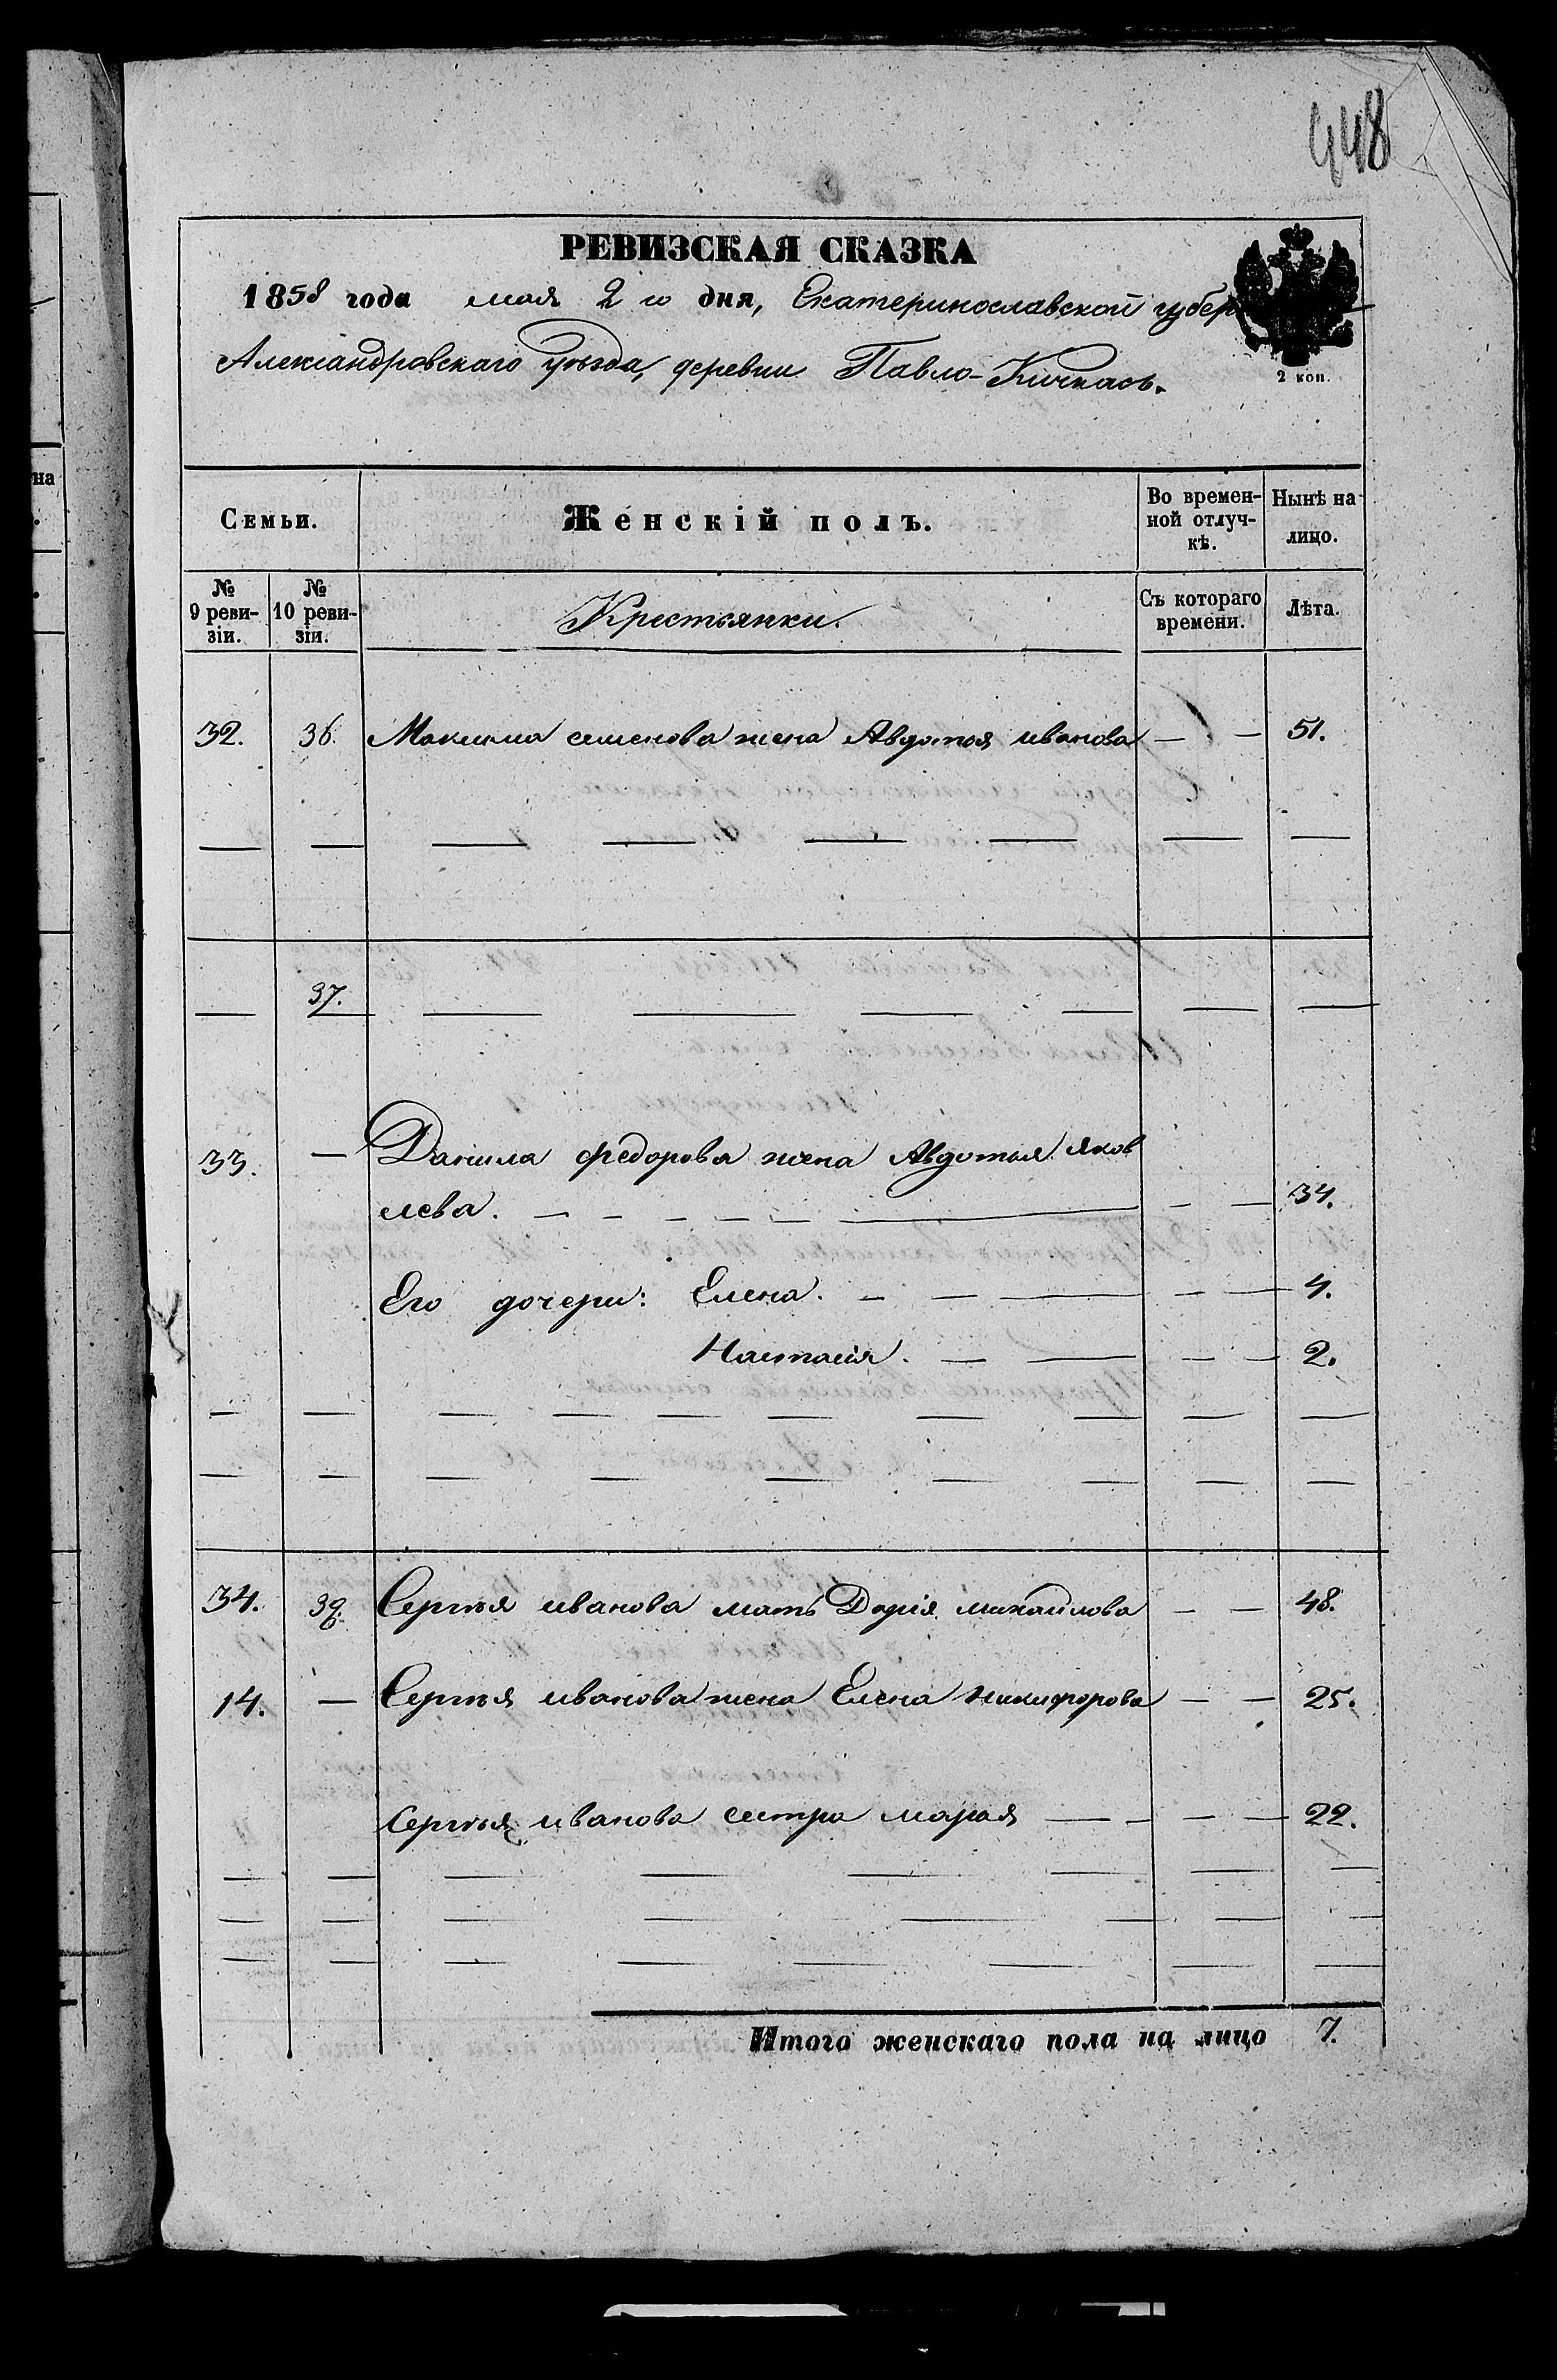 448
РЕВИЗСКАЯ СКАЗКА
1858 года мая 2 го дня, Екатеринославской губер
Александровскаго уѣзда, деревни Павло-Кичкасъ.
2 коп.
на
Семьи.
Женскій полъ.
Во времен-
ной отлуч-
кѣ.
Нынѣ на
лицо.
№
9 реви-
зіи.
№
10 реви-
зіи.
Крестьянки.
Съ котораго
времени.
Лѣта.
32. 36. Максима семенова жена Авдотья иванова — — 51.
37.
33. — Данила федорова жена Авдотья яков
лева. — — 34.
Его дочери: Елена. — — 4.
Настасія. — — 2.
34. 38. Сергѣя иванова мать Дарія михайлова — — 48.
14. — Сергѣя иванова жена Елена никифорова — — 25.
Сергѣя иванова сестра марья — — 22.
Итого женскаго пола на лицо 7.